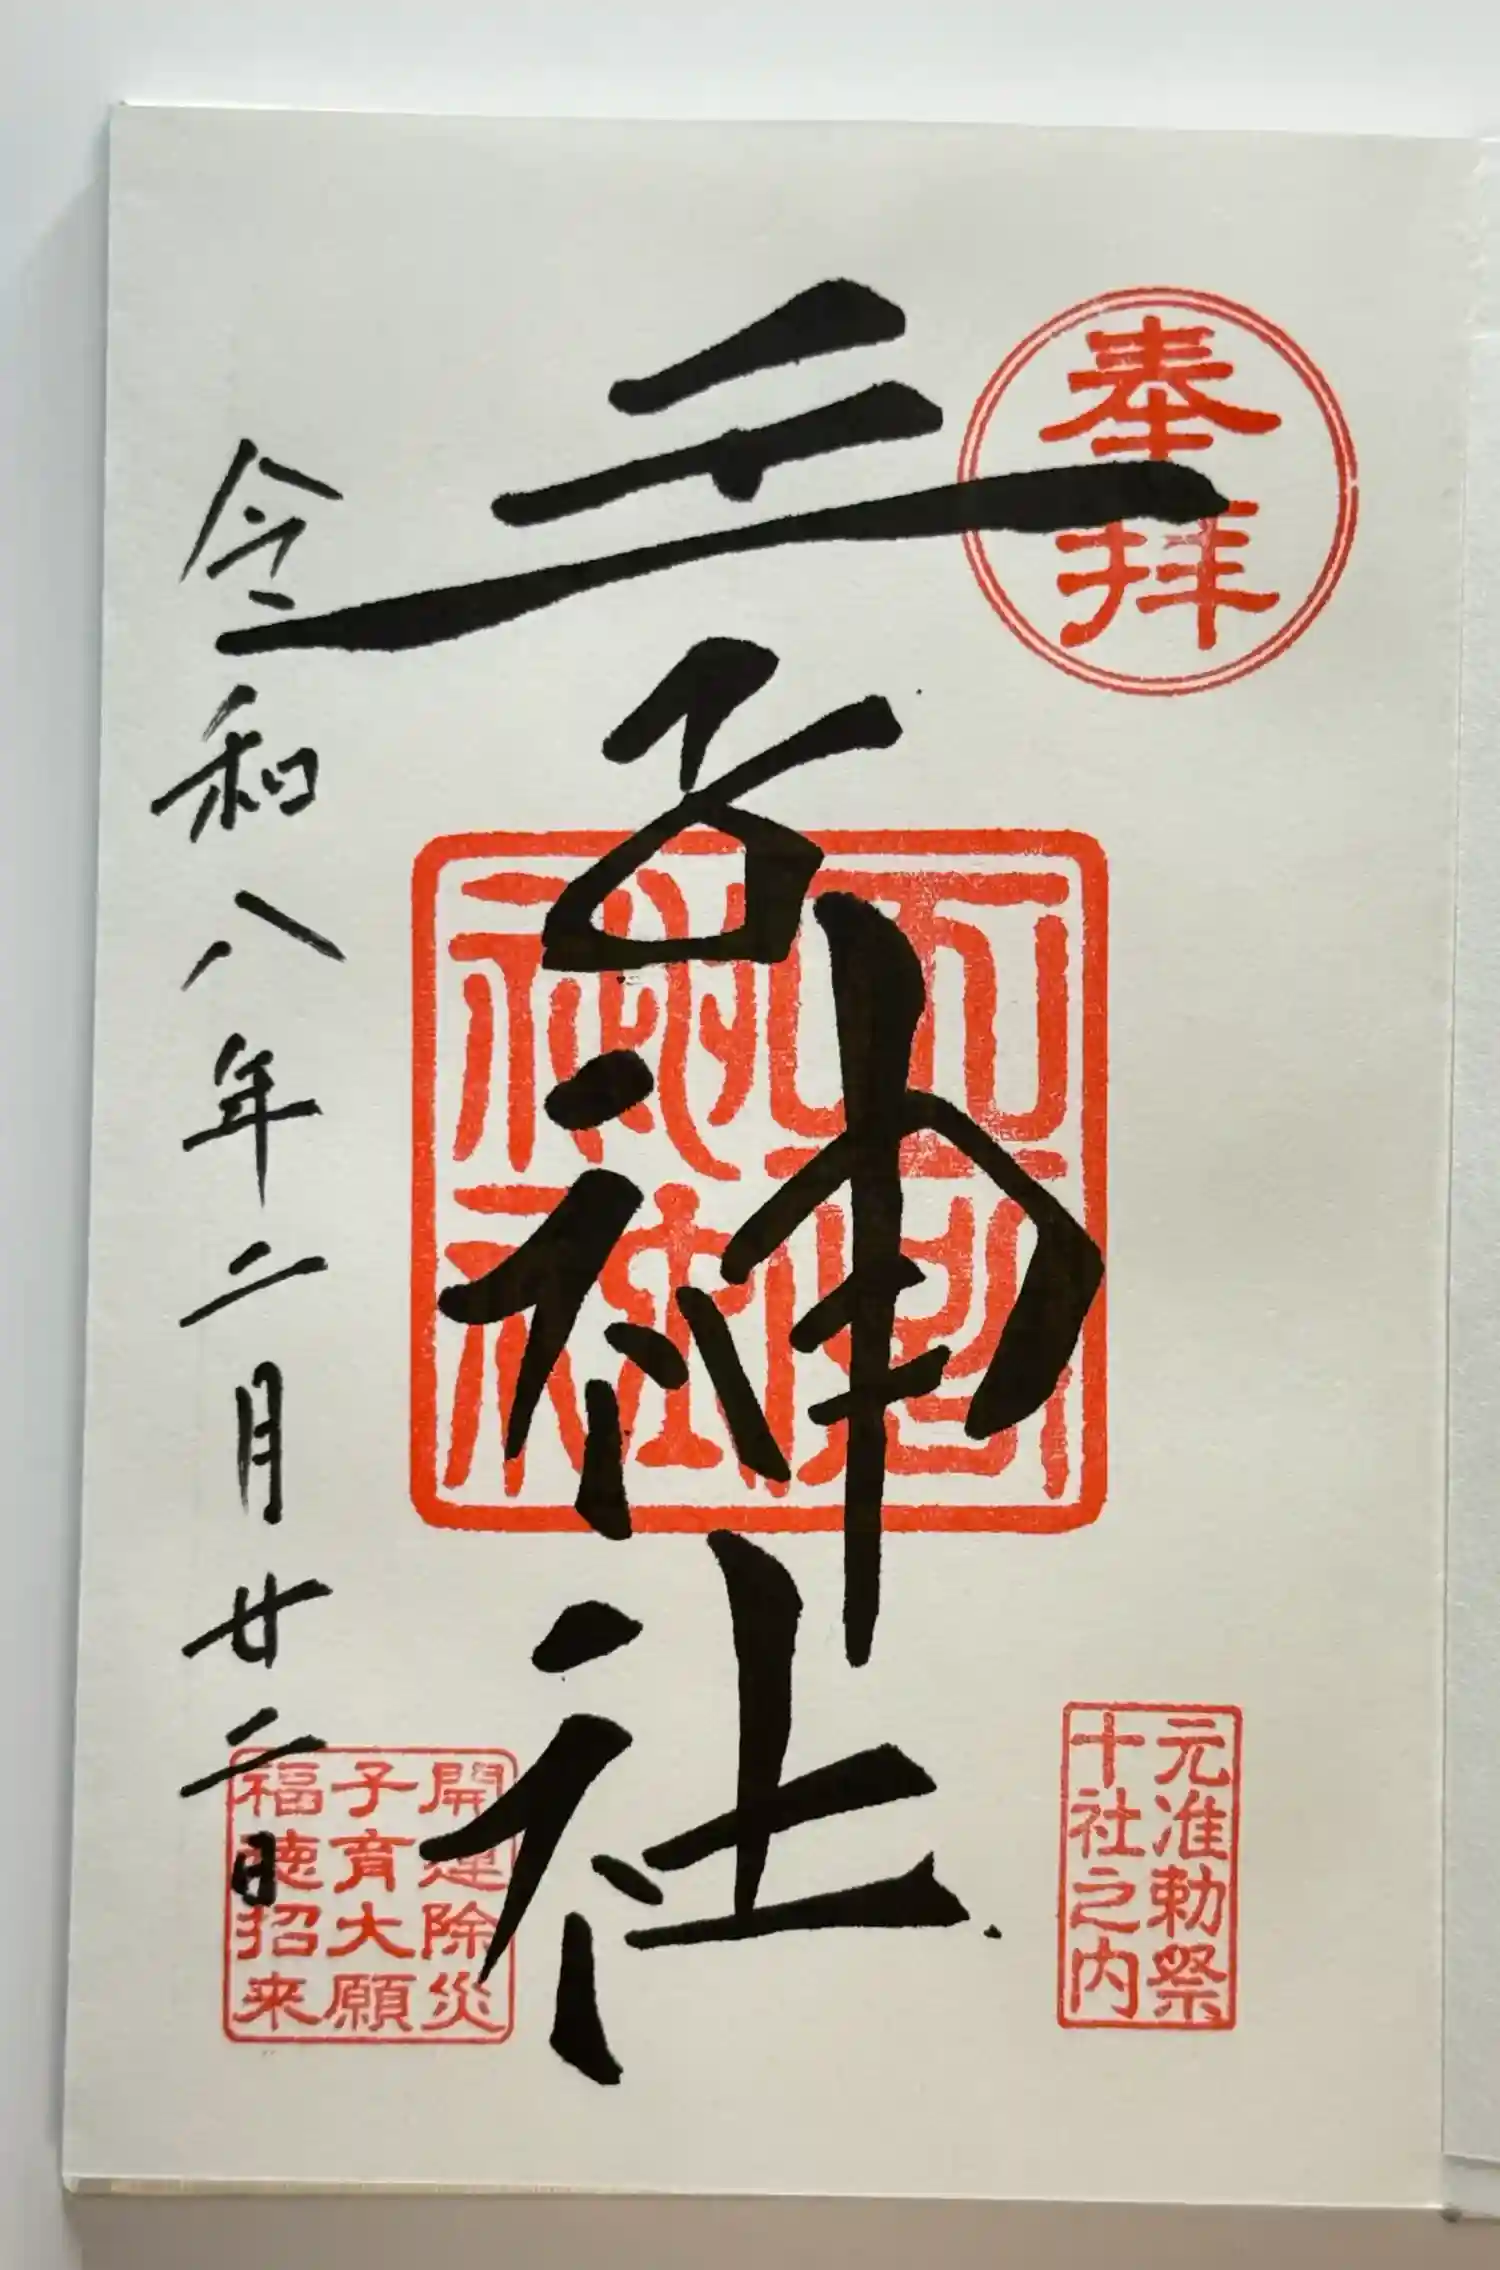 奉拝
王子神社
元准勅祭
十社之内
令和八年二月廿二日
開運除災
子育大願
福徳招来